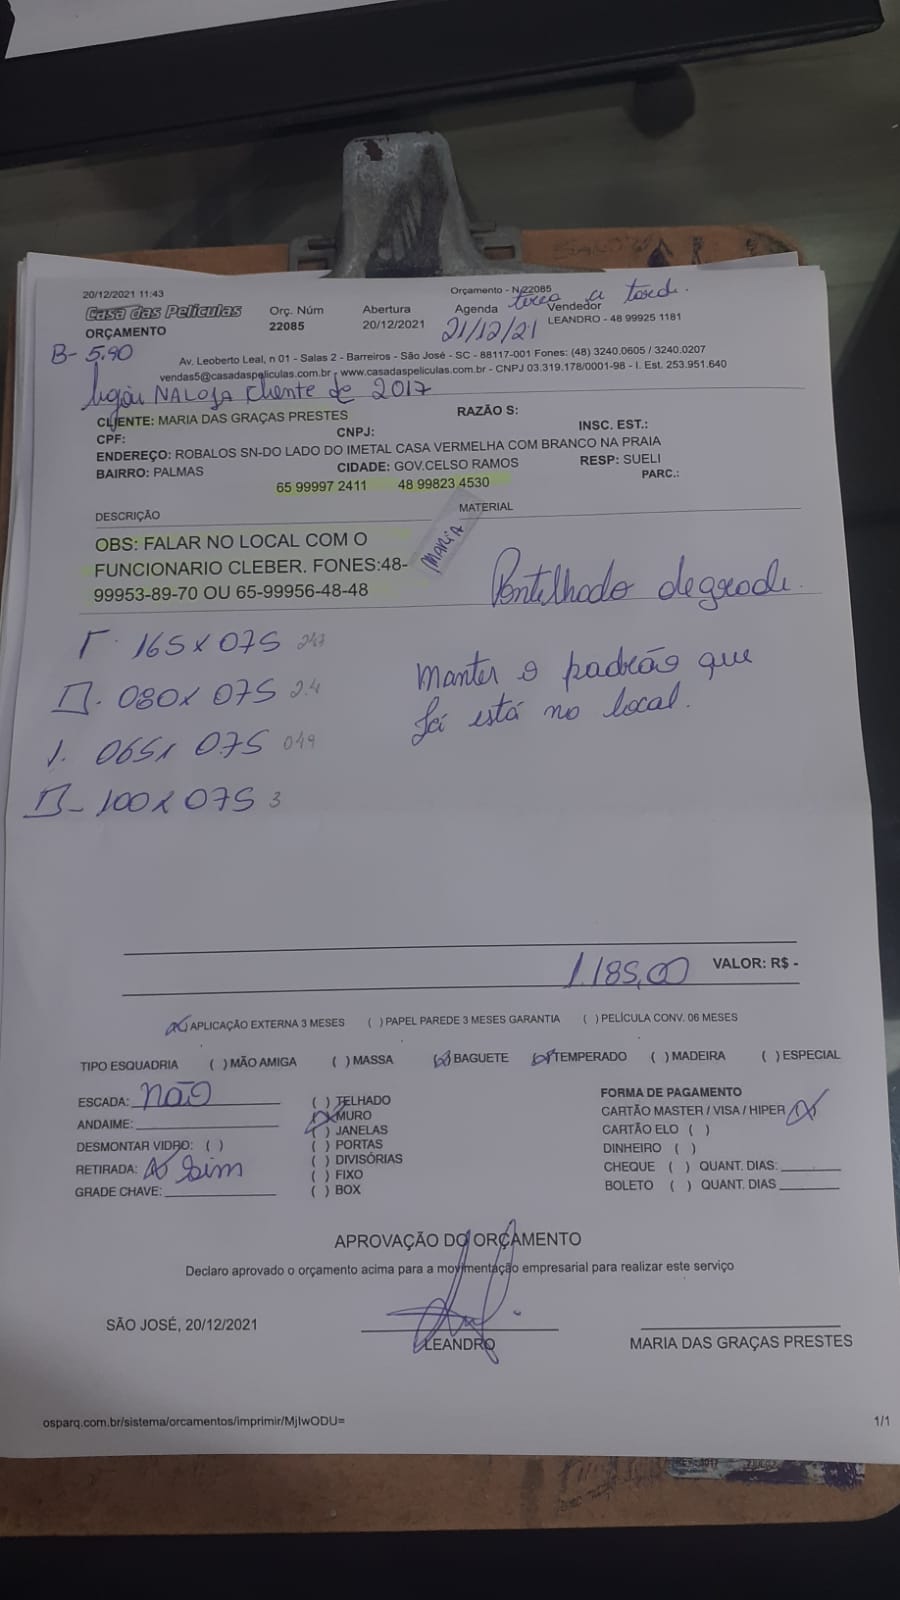 20/12/2021 11:43
Orçamento - N 22085
Casa das Películas
ORÇAMENTO
Orç. Núm
22085
Abertura
20/12/2021
Agenda
terça a tarde.
21/12/21
Vendedor
LEANDRO - 48 99925 1181
B- 5.90
Av. Leoberto Leal, n 01 - Salas 2 - Barreiros - São José - SC - 88117-001 Fones: (48) 3240.0605 / 3240.0207
vendas5@casadaspeliculas.com.br - www.casadaspeliculas.com.br - CNPJ 03.319.178/0001-98 - I. Est. 253.951.640
ligou NA LOJA cliente de 2017
CLIENTE: MARIA DAS GRAÇAS PRESTES
RAZÃO S:
CPF:
CNPJ:
INSC. EST.:
ENDEREÇO: ROBALOS SN-DO LADO DO IMETAL CASA VERMELHA COM BRANCO NA PRAIA
BAIRRO: PALMAS
CIDADE: GOV.CELSO RAMOS
RESP: SUELI
65 99997 2411 48 99823 4530
PARC.:
DESCRIÇÃO
MATERIAL
OBS: FALAR NO LOCAL COM O
FUNCIONARIO CLEBER. FONES:48-
99953-89-70 OU 65-99956-48-48
MARIA
Pontilhado degrade.
165 x 075
080 x 075 2.4
065 x 075 049
100 x 075 3
Manter o padrão que
Já está no local.
1.185,00 VALOR: R$ -
APLICAÇÃO EXTERNA 3 MESES ( ) PAPEL PAREDE 3 MESES GARANTIA ( ) PELÍCULA CONV. 06 MESES
TIPO ESQUADRIA ( ) MÃO AMIGA ( ) MASSA (x) BAGUETE (x) TEMPERADO ( ) MADEIRA ( ) ESPECIAL
ESCADA: Não
ANDAIME:
DESMONTAR VIDRO: ( )
RETIRADA: Sim
GRADE CHAVE:
( ) TELHADO
(x) MURO
( ) JANELAS
( ) PORTAS
( ) DIVISÓRIAS
( ) FIXO
( ) BOX
FORMA DE PAGAMENTO
CARTÃO MASTER / VISA / HIPER (x)
CARTÃO ELO ( )
DINHEIRO ( )
CHEQUE ( ) QUANT. DIAS:
BOLETO ( ) QUANT. DIAS
APROVAÇÃO DO ORÇAMENTO
Declaro aprovado o orçamento acima para a movimentação empresarial para realizar este serviço
SÃO JOSÉ, 20/12/2021
LEANDRO
MARIA DAS GRAÇAS PRESTES
osparq.com.br/sistema/orcamentos/imprimir/MjIwODU=
1/1